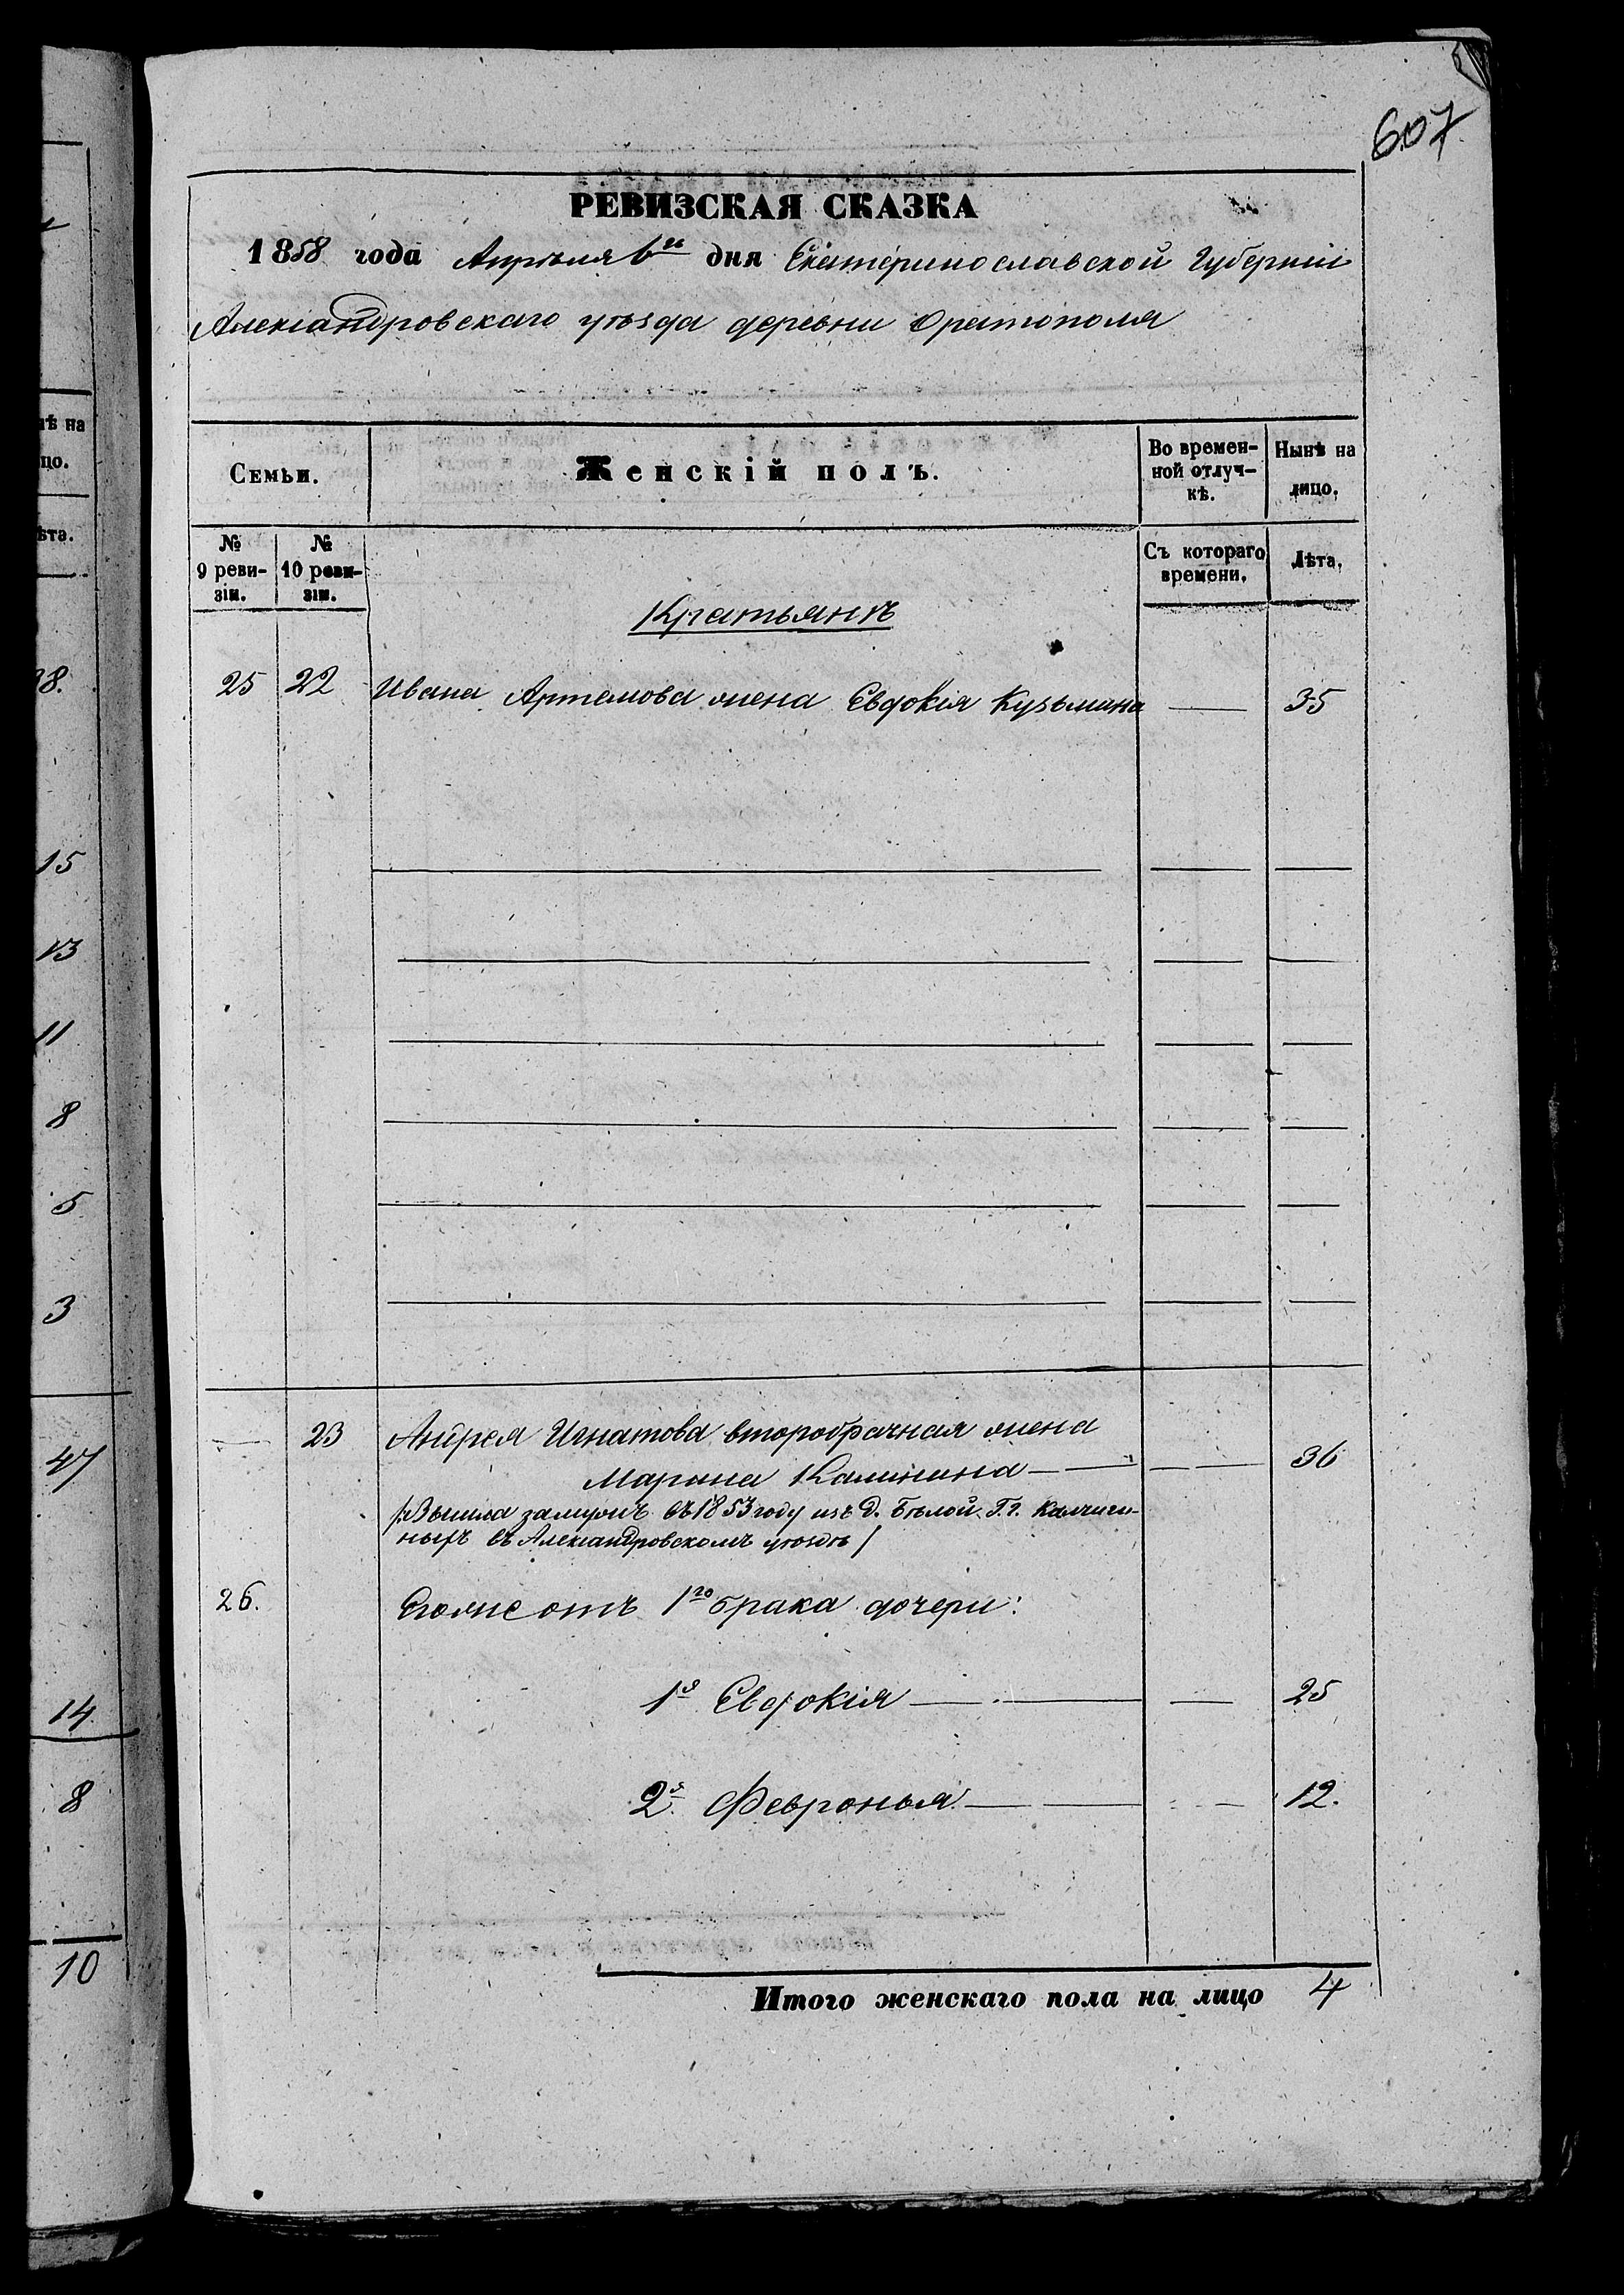 607
РЕВИЗСКАЯ СКАЗКА
1858 года Апрѣля 6го дня Екатеринославской Губерніи
Александровскаго уѣзда деревни Оратополя
Семьи.
Женскій полъ.
Во времен-
ной отлуч-
кѣ.
Нынѣ на
лицо.
№
9 реви-
зіи.
№
10 реви-
зіи.
Съ котораго
времени.
Лѣта.
Крестьянъ
25 22 Ивана Артемова жена Евдокія Кузьмина — 35
23 Андрея Игнатова второбрачная жена
Марина Калинина — — 36
/:Вышла замужъ въ 1853 году изъ д. Бѣлой Г.г.
ныхъ въ Александровскомъ уѣздѣ/
26. Егоже отъ 1го брака дочери:
1я Евдокія — — 25
2я Февронья — — 12.
Итого женскаго пола на лицо 4
нѣ на
цо.
ѣта.
38.
15
13
11
8
5
3
47
14
8
10